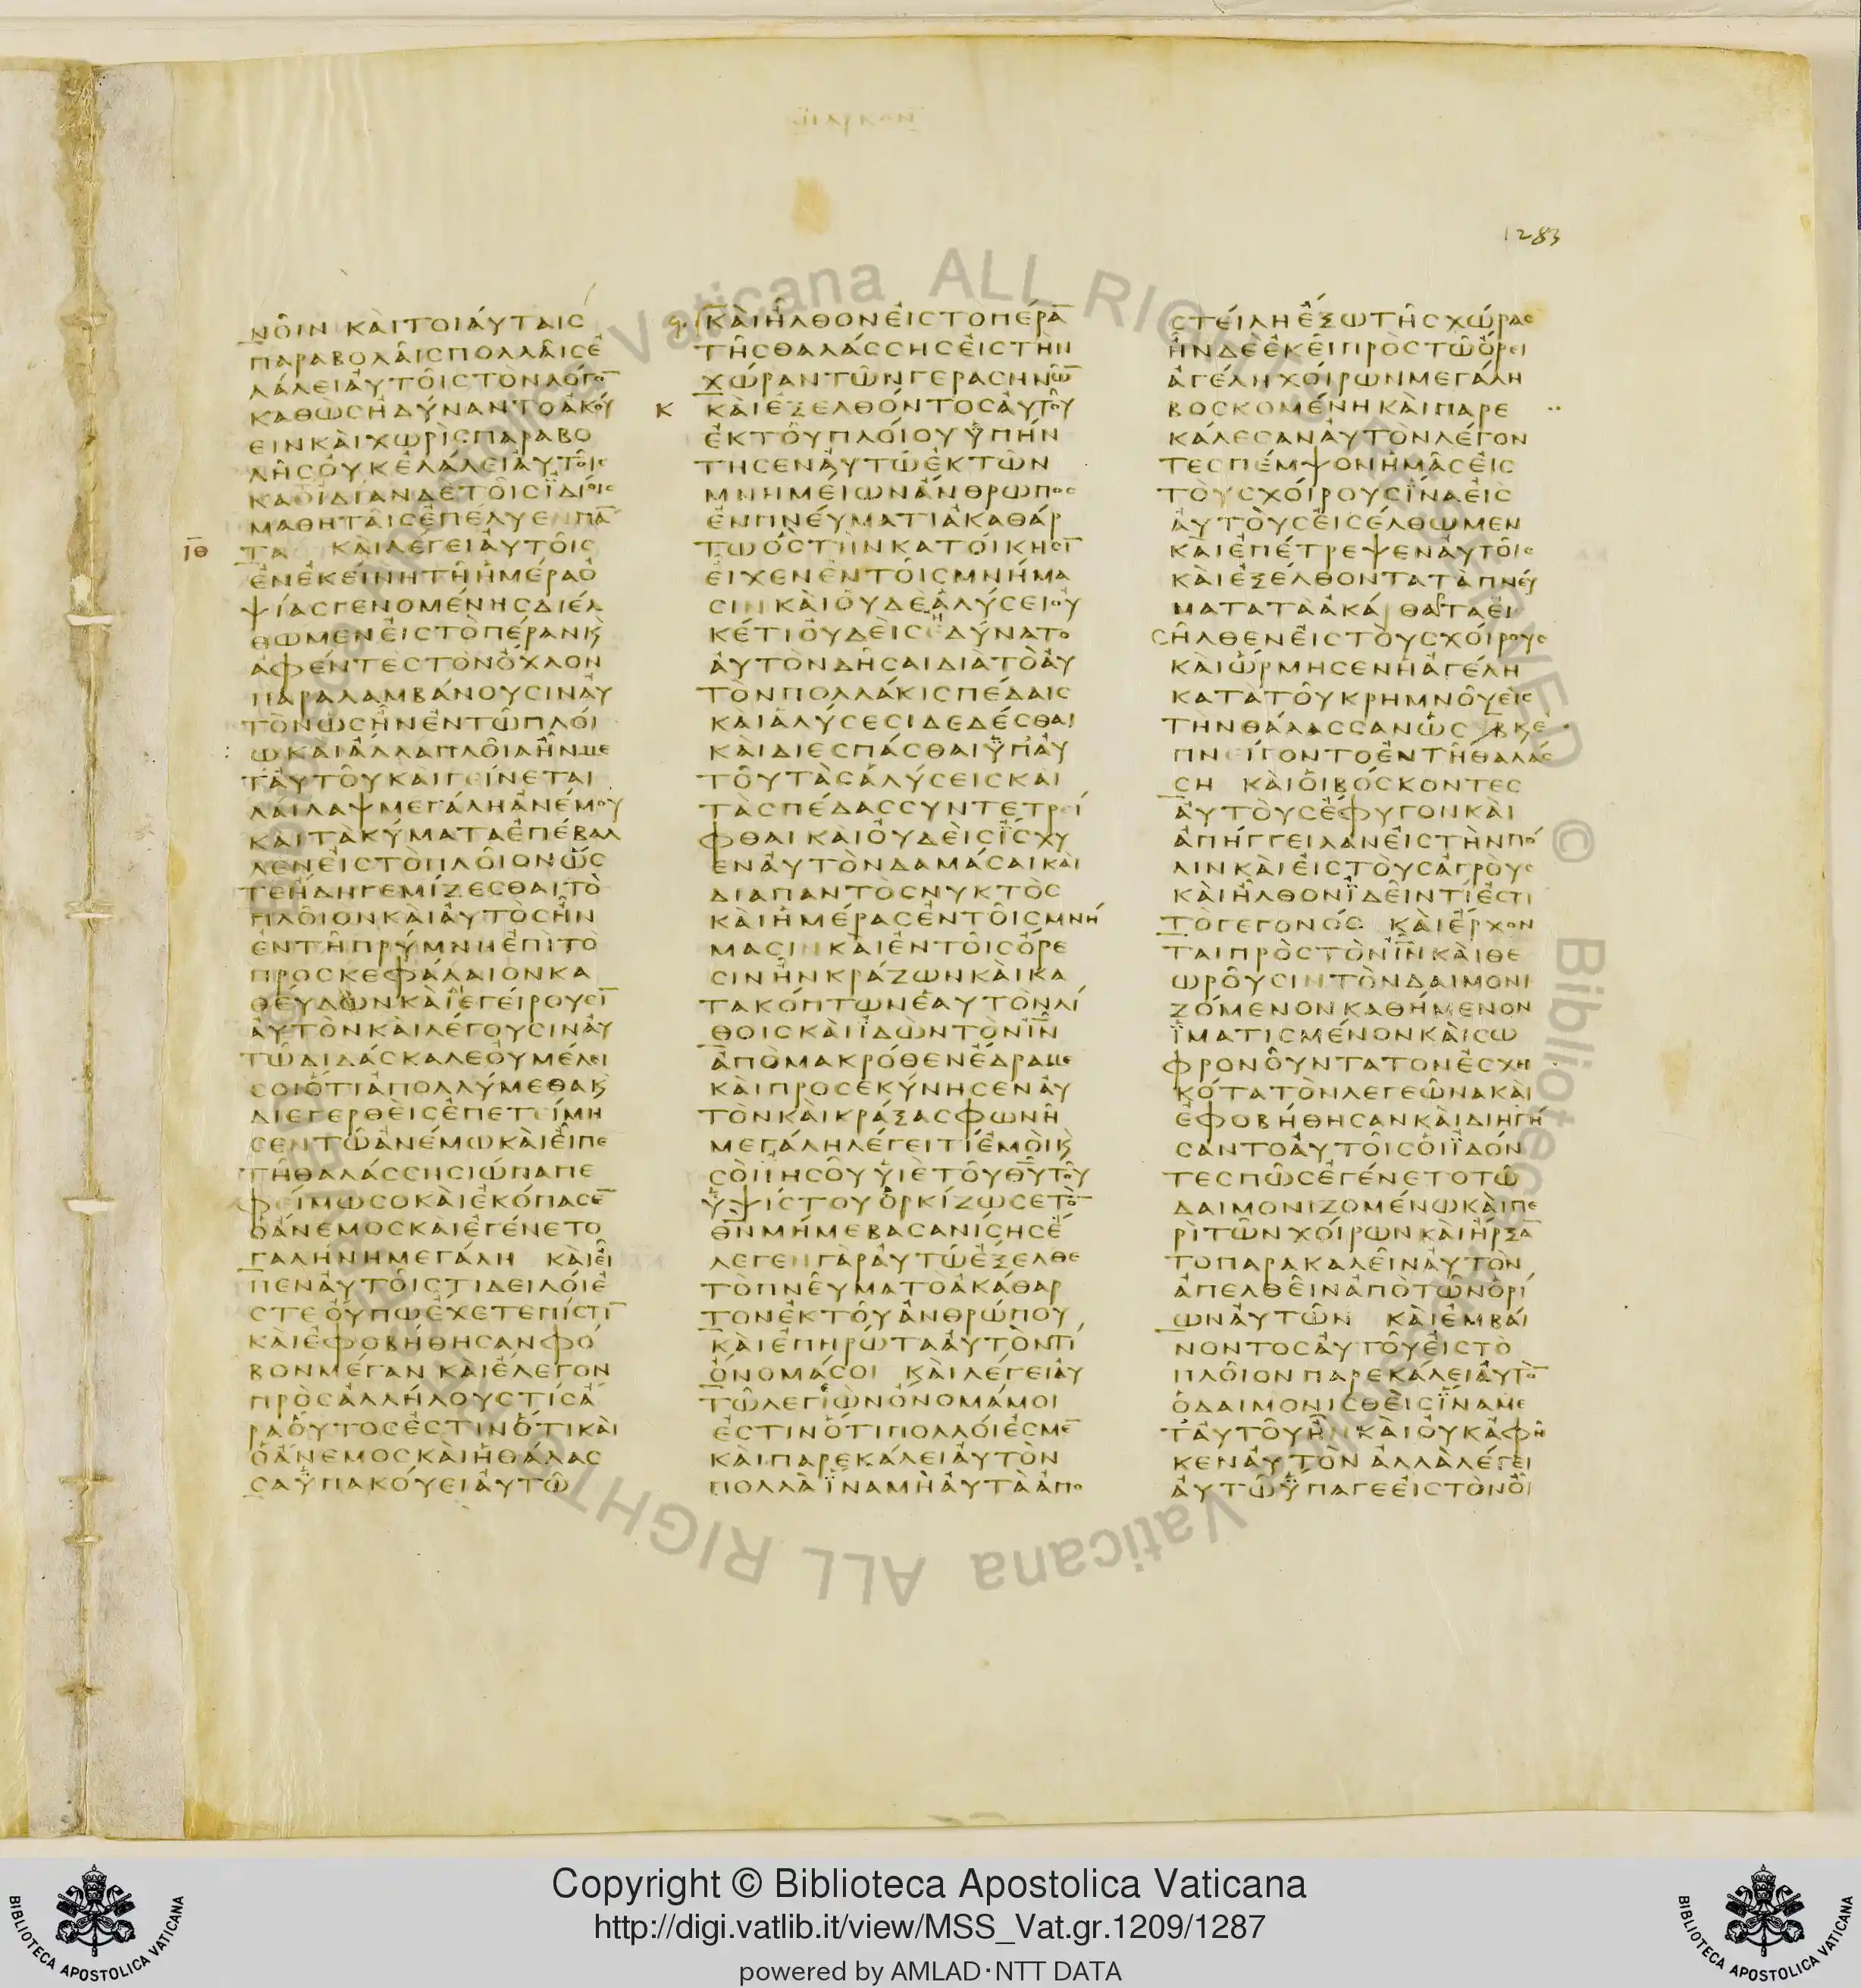 ΜΑΡΚΟΝ
1283
ΝΟΙΝ ΚΑΙΤΟΙΑΥΤΑΙϹ
ΠΑΡΑΒΟΛΑΙϹΠΟΛΛΑΙϹΕ
ΛΑΛΕΙΑΥΤΟΙϹΤΟΝΛΟΓΟ̅
ΚΑΘΩϹΗΔΥΝΑΝΤΟΑΚΟΥ
ΕΙΝΚΑΙΧΩΡΙϹΠΑΡΑΒΟ
ΛΗϹΟΥΚΕΛΑΛΕΙΑΥΤΟΙϹ
ΚΑΘΙΔΙΑΝΔΕΤΟΙϹΪΔΙΟΙϹ
ΜΑΘΗΤΑΙϹΕΠΕΛΥΕΝΠΑ̅
ΙΘ ΤΑ ΚΑΙΛΕΓΕΙΑΥΤΟΙϹ
ΕΝΕΚΕΙΝΗΤΗΗΜΕΡΑΟ
ΨΙΑϹΓΕΝΟΜΕΝΗϹΔΙΕΛ
ΘΩΜΕΝΕΙϹΤΟΠΕΡΑΝΚ̀
ΑΦΕΝΤΕϹΤΟΝΟΧΛΟΝ
ΠΑΡΑΛΑΜΒΑΝΟΥϹΙΝΑΥ
ΤΟΝΩϹΗΝΕΝΤΩΠΛΟΙ
ΩΚΑΙΑΛΛΑΠΛΟΙΑΗΝΜΕ
ΤΑΥΤΟΥΚΑΙΓΕΙΝΕΤΑΙ
ΛΑΙΛΑΨΜΕΓΑΛΗΑΝΕΜΟΥ
ΚΑΙΤΑΚΥΜΑΤΑΕΠΕΒΑΛ
ΛΕΝΕΙϹΤΟΠΛΟΙΟΝΩϹ
ΤΕΗΔΗΓΕΜΙΖΕϹΘΑΙΤΟ
ΠΛΟΙΟΝΚΑΙΑΥΤΟϹΗΝ
ΕΝΤΗΠΡΥΜΝΗΕΠΙΤΟ
ΠΡΟϹΚΕΦΑΛΑΙΟΝΚΑ
ΘΕΥΔΩΝΚΑΙΕΓΕΙΡΟΥϹΙ̅
ΑΥΤΟΝΚΑΙΛΕΓΟΥϹΙΝΑΥ
ΤΩΔΙΔΑϹΚΑΛΕΟΥΜΕΛΕΙ
ϹΟΙΟΤΙΑΠΟΛΛΥΜΕΘΑΚ̀
ΔΙΕΓΕΡΘΕΙϹΕΠΕΤΕΙΜΗ
ϹΕΝΤΩΑΝΕΜΩΚΑΙΕΙΠΕ
ΤΗΘΑΛΑϹϹΗϹΙΩΠΑΠΕ
ΦΕΙΜΩϹΟΚΑΙΕΚΟΠΑϹΕ̅
ΟΑΝΕΜΟϹΚΑΙΕΓΕΝΕΤΟ
ΓΑΛΗΝΗΜΕΓΑΛΗ ΚΑΙΕΙ
ΠΕΝΑΥΤΟΙϹΤΙΔΕΙΛΟΙΕ
ϹΤΕΟΥΠΩΕΧΕΤΕΠΙϹΤΙ̅
ΚΑΙΕΦΟΒΗΘΗϹΑΝΦΟ
ΒΟΝΜΕΓΑΝ ΚΑΙΕΛΕΓΟΝ
ΠΡΟϹΑΛΛΗΛΟΥϹΤΙϹΑ
ΡΑΟΥΤΟϹΕϹΤΙΝΟΤΙΚΑΙ
ΟΑΝΕΜΟϹΚΑΙΗΘΑΛΑϹ
ϹΑΫΠΑΚΟΥΕΙΑΥΤΩ
ΚΑΙΗΛΘΟΝΕΙϹΤΟΠΕΡΑ̅
ΤΗϹΘΑΛΑϹϹΗϹΕΙϹΤΗΝ
ΧΩΡΑΝΤΩΝΓΕΡΑϹΗΝΩ̅
Κ ΚΑΙΕΞΕΛΘΟΝΤΟϹΑΥΤΟΥ
ΕΚΤΟΥΠΛΟΙΟΥΫΠΗΝ
ΤΗϹΕΝΑΥΤΩΕΚΤΩΝ
ΜΝΗΜΕΙΩΝΑΝΘΡΩΠΟϹ
ΕΝΠΝΕΥΜΑΤΙΑΚΑΘΑΡ
ΤΩΟϹΤΗΝΚΑΤΟΙΚΗϹΙ̅
ΕΙΧΕΝΕΝΤΟΙϹΜΝΗΜΑ
ϹΙΝΚΑΙΟΥΔΕΑΛΥϹΕΙΟΥ
ΚΕΤΙΟΥΔΕΙϹΕΔΥΝΑΤΟ
ΑΥΤΟΝΔΗϹΑΙΔΙΑΤΟΑΥ
ΤΟΝΠΟΛΛΑΚΙϹΠΕΔΑΙϹ
ΚΑΙΑΛΥϹΕϹΙΔΕΔΕϹΘΑΙ
ΚΑΙΔΙΕϹΠΑϹΘΑΙΫΠΑΥ
ΤΟΥΤΑϹΑΛΥϹΕΙϹΚΑΙ
ΤΑϹΠΕΔΑϹϹΥΝΤΕΤΡΕΙ
ΦΘΑΙΚΑΙΟΥΔΕΙϹΪϹΧΥ
ΕΝΑΥΤΟΝΔΑΜΑϹΑΙΚΑΙ
ΔΙΑΠΑΝΤΟϹΝΥΚΤΟϹ
ΚΑΙΗΜΕΡΑϹΕΝΤΟΙϹΜΝΗ
ΜΑϹΙΝΚΑΙΕΝΤΟΙϹΟΡΕ
ϹΙΝΗΝΚΡΑΖΩΝΚΑΙΚΑ
ΤΑΚΟΠΤΩΝΕΑΥΤΟΝΛΙ
ΘΟΙϹΚΑΙΪΔΩΝΤΟΝΙ̅Ν̅
ΑΠΟΜΑΚΡΟΘΕΝΕΔΡΑΜΕ
ΚΑΙΠΡΟϹΕΚΥΝΗϹΕΝΑΥ
ΤΟΝΚΑΙΚΡΑΞΑϹΦΩΝΗ
ΜΕΓΑΛΗΛΕΓΕΙΤΙΕΜΟΙΚ̀
ϹΟΙΙΗϹΟΥΫΙΕΤΟΥΘ̅Υ̅ΤΟΥ
ΫΨΙϹΤΟΥΟΡΚΙΖΩϹΕΤΟ̅
Θ̅Ν̅ΜΗΜΕΒΑϹΑΝΙϹΗϹΕ
ΛΕΓΕΝΓΑΡΑΥΤΩΕΞΕΛΘΕ
ΤΟΠΝΕΥΜΑΤΟΑΚΑΘΑΡ
ΤΟΝΕΚΤΟΥΑΝΘΡΩΠΟΥ
ΚΑΙΕΠΗΡΩΤΑΑΥΤΟΝΤΙ
ΟΝΟΜΑϹΟΙ ΚΑΙΛΕΓΕΙΑΥ
ΤΩΛΕΓΙΩΝΟΝΟΜΑΜΟΙ
ΕϹΤΙΝΟΤΙΠΟΛΛΟΙΕϹΜΕ̅
ΚΑΙΠΑΡΕΚΑΛΕΙΑΥΤΟΝ
ΠΟΛΛΑΪΝΑΜΗΑΥΤΑΑΠΟ
ϹΤΕΙΛΗΕΞΩΤΗϹΧΩΡΑϹ
ΗΝΔΕΕΚΕΙΠΡΟϹΤΩΟΡΕΙ
ΑΓΕΛΗΧΟΙΡΩΝΜΕΓΑΛΗ
ΒΟϹΚΟΜΕΝΗΚΑΙΠΑΡΕ
ΚΑΛΕϹΑΝΑΥΤΟΝΛΕΓΟΝ
ΤΕϹΠΕΜΨΟΝΗΜΑϹΕΙϹ
ΤΟΥϹΧΟΙΡΟΥϹΪΝΑΕΙϹ
ΑΥΤΟΥϹΕΙϹΕΛΘΩΜΕΝ
ΚΑΙΕΠΕΤΡΕΨΕΝΑΥΤΟΙϹ
ΚΑΙΕΞΕΛΘΟΝΤΑΤΑΠΝΕΥ
ΜΑΤΑΤΑΑΚΑΘΑΡΤΑΕΙ
ϹΗΛΘΕΝΕΙϹΤΟΥϹΧΟΙΡΟΥϹ
ΚΑΙΩΡΜΗϹΕΝΗΑΓΕΛΗ
ΚΑΤΑΤΟΥΚΡΗΜΝΟΥΕΙϹ
ΤΗΝΘΑΛΑϹϹΑΝΩϹ ΒΚΕ
ΠΝΕΙΓΟΝΤΟΕΝΤΗΘΑΛΑϹ
ϹΗ ΚΑΙΟΙΒΟϹΚΟΝΤΕϹ
ΑΥΤΟΥϹΕΦΥΓΟΝΚΑΙ
ΑΠΗΓΓΕΙΛΑΝΕΙϹΤΗΝΠΟ
ΛΙΝΚΑΙΕΙϹΤΟΥϹΑΓΡΟΥϹ
ΚΑΙΗΛΘΟΝΪΔΕΙΝΤΙΕϹΤΙ
ΤΟΓΕΓΟΝΟϹ ΚΑΙΕΡΧΟΝ
ΤΑΙΠΡΟϹΤΟΝΙ̅Ν̅ΚΑΙΘΕ
ΩΡΟΥϹΙΝΤΟΝΔΑΙΜΟΝΙ
ΖΟΜΕΝΟΝΚΑΘΗΜΕΝΟΝ
ΪΜΑΤΙϹΜΕΝΟΝΚΑΙϹΩ
ΦΡΟΝΟΥΝΤΑΤΟΝΕϹΧΗ
ΚΟΤΑΤΟΝΛΕΓΕΩΝΑΚΑΙ
ΕΦΟΒΗΘΗϹΑΝΚΑΙΔΙΗΓΗ
ϹΑΝΤΟΑΥΤΟΙϹΟΙΪΔΟΝ
ΤΕϹΠΩϹΕΓΕΝΕΤΟΤΩ
ΔΑΙΜΟΝΙΖΟΜΕΝΩΚΑΙΠΕ
ΡΙΤΩΝΧΟΙΡΩΝΚΑΙΗΡΞΑ̅
ΤΟΠΑΡΑΚΑΛΕΙΝΑΥΤΟΝ
ΑΠΕΛΘΕΙΝΑΠΟΤΩΝΟΡΙ
ΩΝΑΥΤΩΝ ΚΑΙΕΜΒΑΙ
ΝΟΝΤΟϹΑΥΤΟΥΕΙϹΤΟ
ΠΛΟΙΟΝΠΑΡΕΚΑΛΕΙΑΥΤΟ̅
ΟΔΑΙΜΟΝΙϹΘΕΙϹΪΝΑΜΕ
ΤΑΥΤΟΥΗΝΚΑΙΟΥΚΑΦΗ
ΚΕΝΑΥΤΟΝΑΛΛΑΛΕΓΕΙ
ΑΥΤΩΫΠΑΓΕΕΙϹΤΟΝΟΙ
Copyright © Biblioteca Apostolica Vaticana
http://digi.vatlib.it/view/MSS_Vat.gr.1209/1287
powered by AMLAD·NTT DATA
BIBLIOTECA APOSTOLICA VATICANA
BIBLIOTECA APOSTOLICA VATICANA